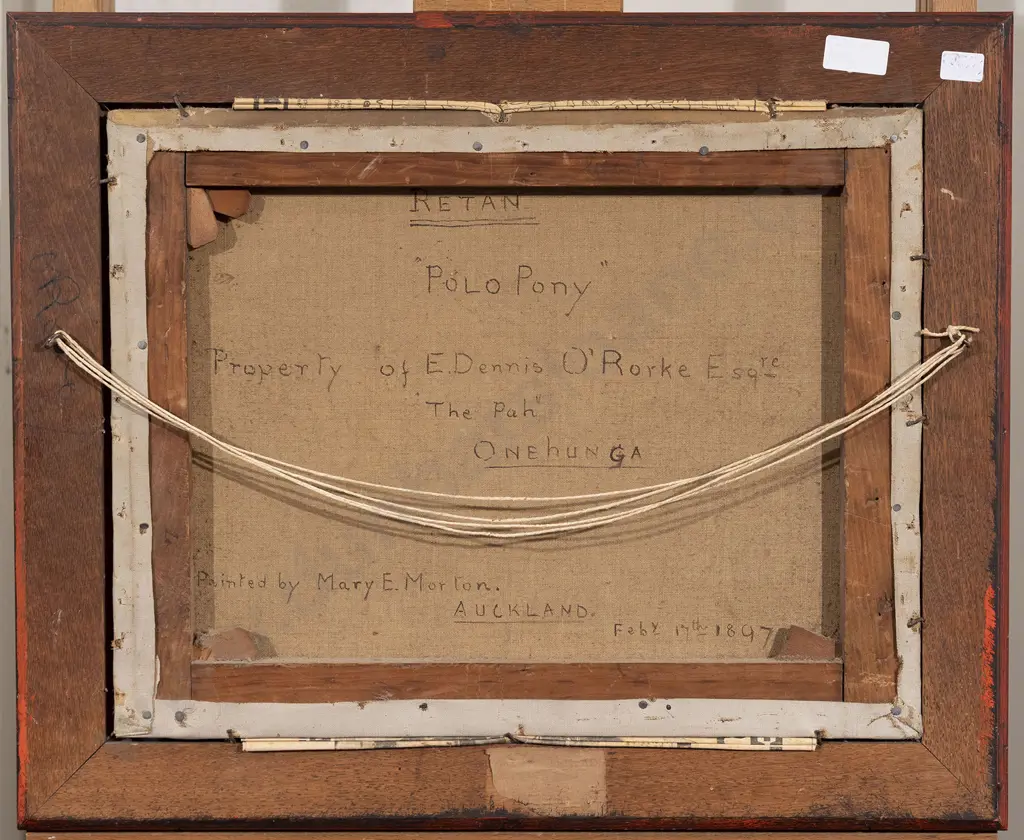 RETAN
"POLO PONY"
Property of E. Dennis O'Rorke Esqre
"The Pah"
ONEHUNGA
Painted by Mary E. Morton.
AUCKLAND.
Feby 17th 1897